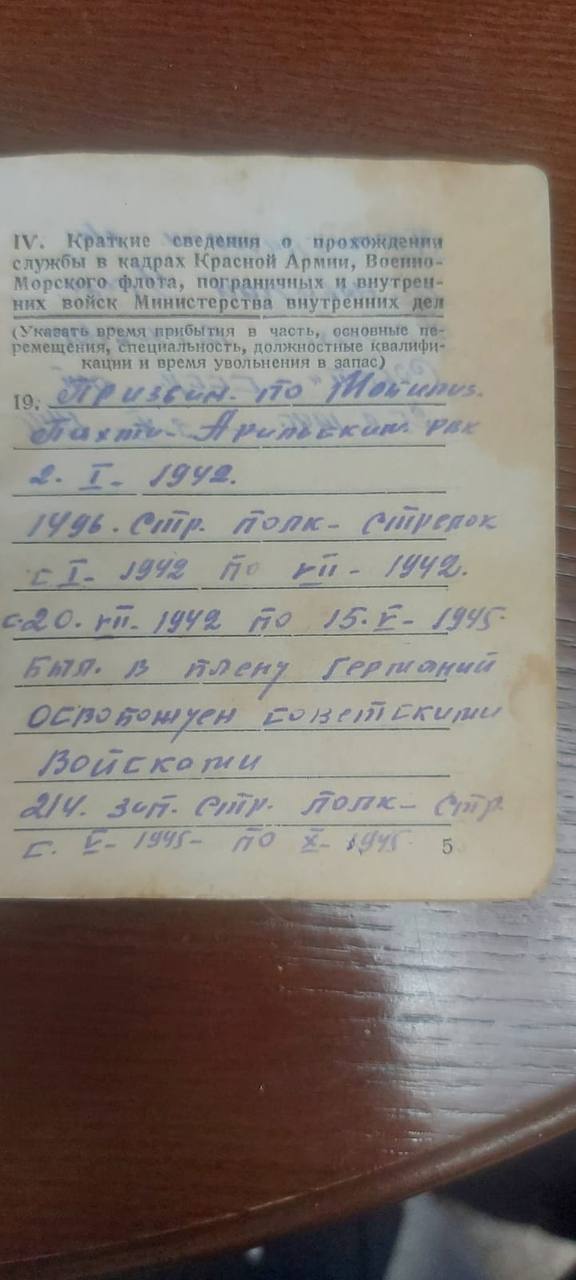 IV. Краткие сведения о прохождении
службы в кадрах Красной Армии, Военно-
Морского флота, пограничных и внутрен-
них войск Министерства внутренних дел
(Указать время прибытия в часть, основные пе-
ремещения, специальность, должностные квалифи-
кации и время увольнения в запас)
19. Призван. по Мобилиз.
Пахта- Аральским рвк
2. I- 1942.
1496. Стр. полк- стрелок
с I- 1942 по VII- 1942.
с.20. VII- 1942 по 15. V- 1945.
был. в плену Германий
Освобожден советскими
Войсками
214. зап. стр. полк- стр.
с. V- 1945- по X- 1945.
5